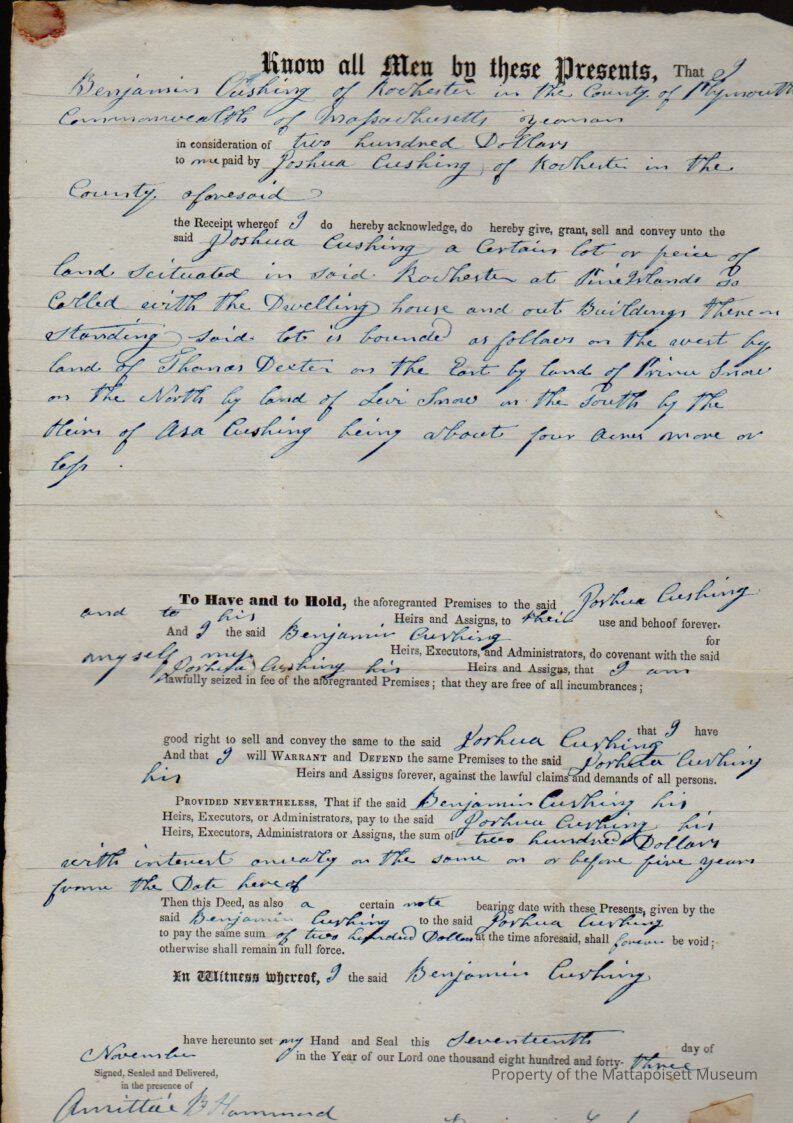 Know all Men by these Presents, That I
Benjamin Cushing of Rochester in the County of Plymouth
Commonwealth of Massachusetts yeoman
in consideration of two hundred Dollars
to me paid by Joshua Cushing of Rochester in the
County aforesaid
the Receipt whereof I do hereby acknowledge, do hereby give, grant, sell and convey unto the
said Joshua Cushing a Certain lot or peice of
land scituated in said Rochester at Pine Islands So
Called with the Dwelling house and out Buildings there on
standing said lot is bounded as follows on the west by
land of Thomas Dexter on the East by land of Prince Snow
on the North by land of Levi Snow on the South by the
Heirs of Asa Cushing being about four Acres more or
less.
To Have and to Hold, the aforegranted Premises to the said Joshua Cushing
and to his Heirs and Assigns, to their use and behoof forever.
And I the said Benjamin Cushing for
myself my Heirs, Executors, and Administrators, do covenant with the said
Joshua Cushing his Heirs and Assigns, that I am
lawfully seized in fee of the aforegranted Premises; that they are free of all incumbrances;
that I have
good right to sell and convey the same to the said Joshua Cushing
And that I will WARRANT and DEFEND the same Premises to the said Joshua Cushing
his Heirs and Assigns forever, against the lawful claims and demands of all persons.
PROVIDED NEVERTHELESS, That if the said Benjamin Cushing his
Heirs, Executors, or Administrators, pay to the said Joshua Cushing his
Heirs, Executors, Administrators or Assigns, the sum of two hundred Dollars
with interest on the same on or before five years
frome the Date hereof
Then this Deed, as also a certain note bearing date with these Presents, given by the
said Benjamin Cushing to the said Joshua Cushing
to pay the same sum of two hundred Dollars at the time aforesaid, shall be void;
otherwise shall remain in full force.
In Witness whereof, I the said Benjamin Cushing
have hereunto set my Hand and Seal this Seventeenth day of
November in the Year of our Lord one thousand eight hundred and forty-three
Signed, Sealed and Delivered,
in the presence of
B Hammond
Property of the Mattapoisett Museum